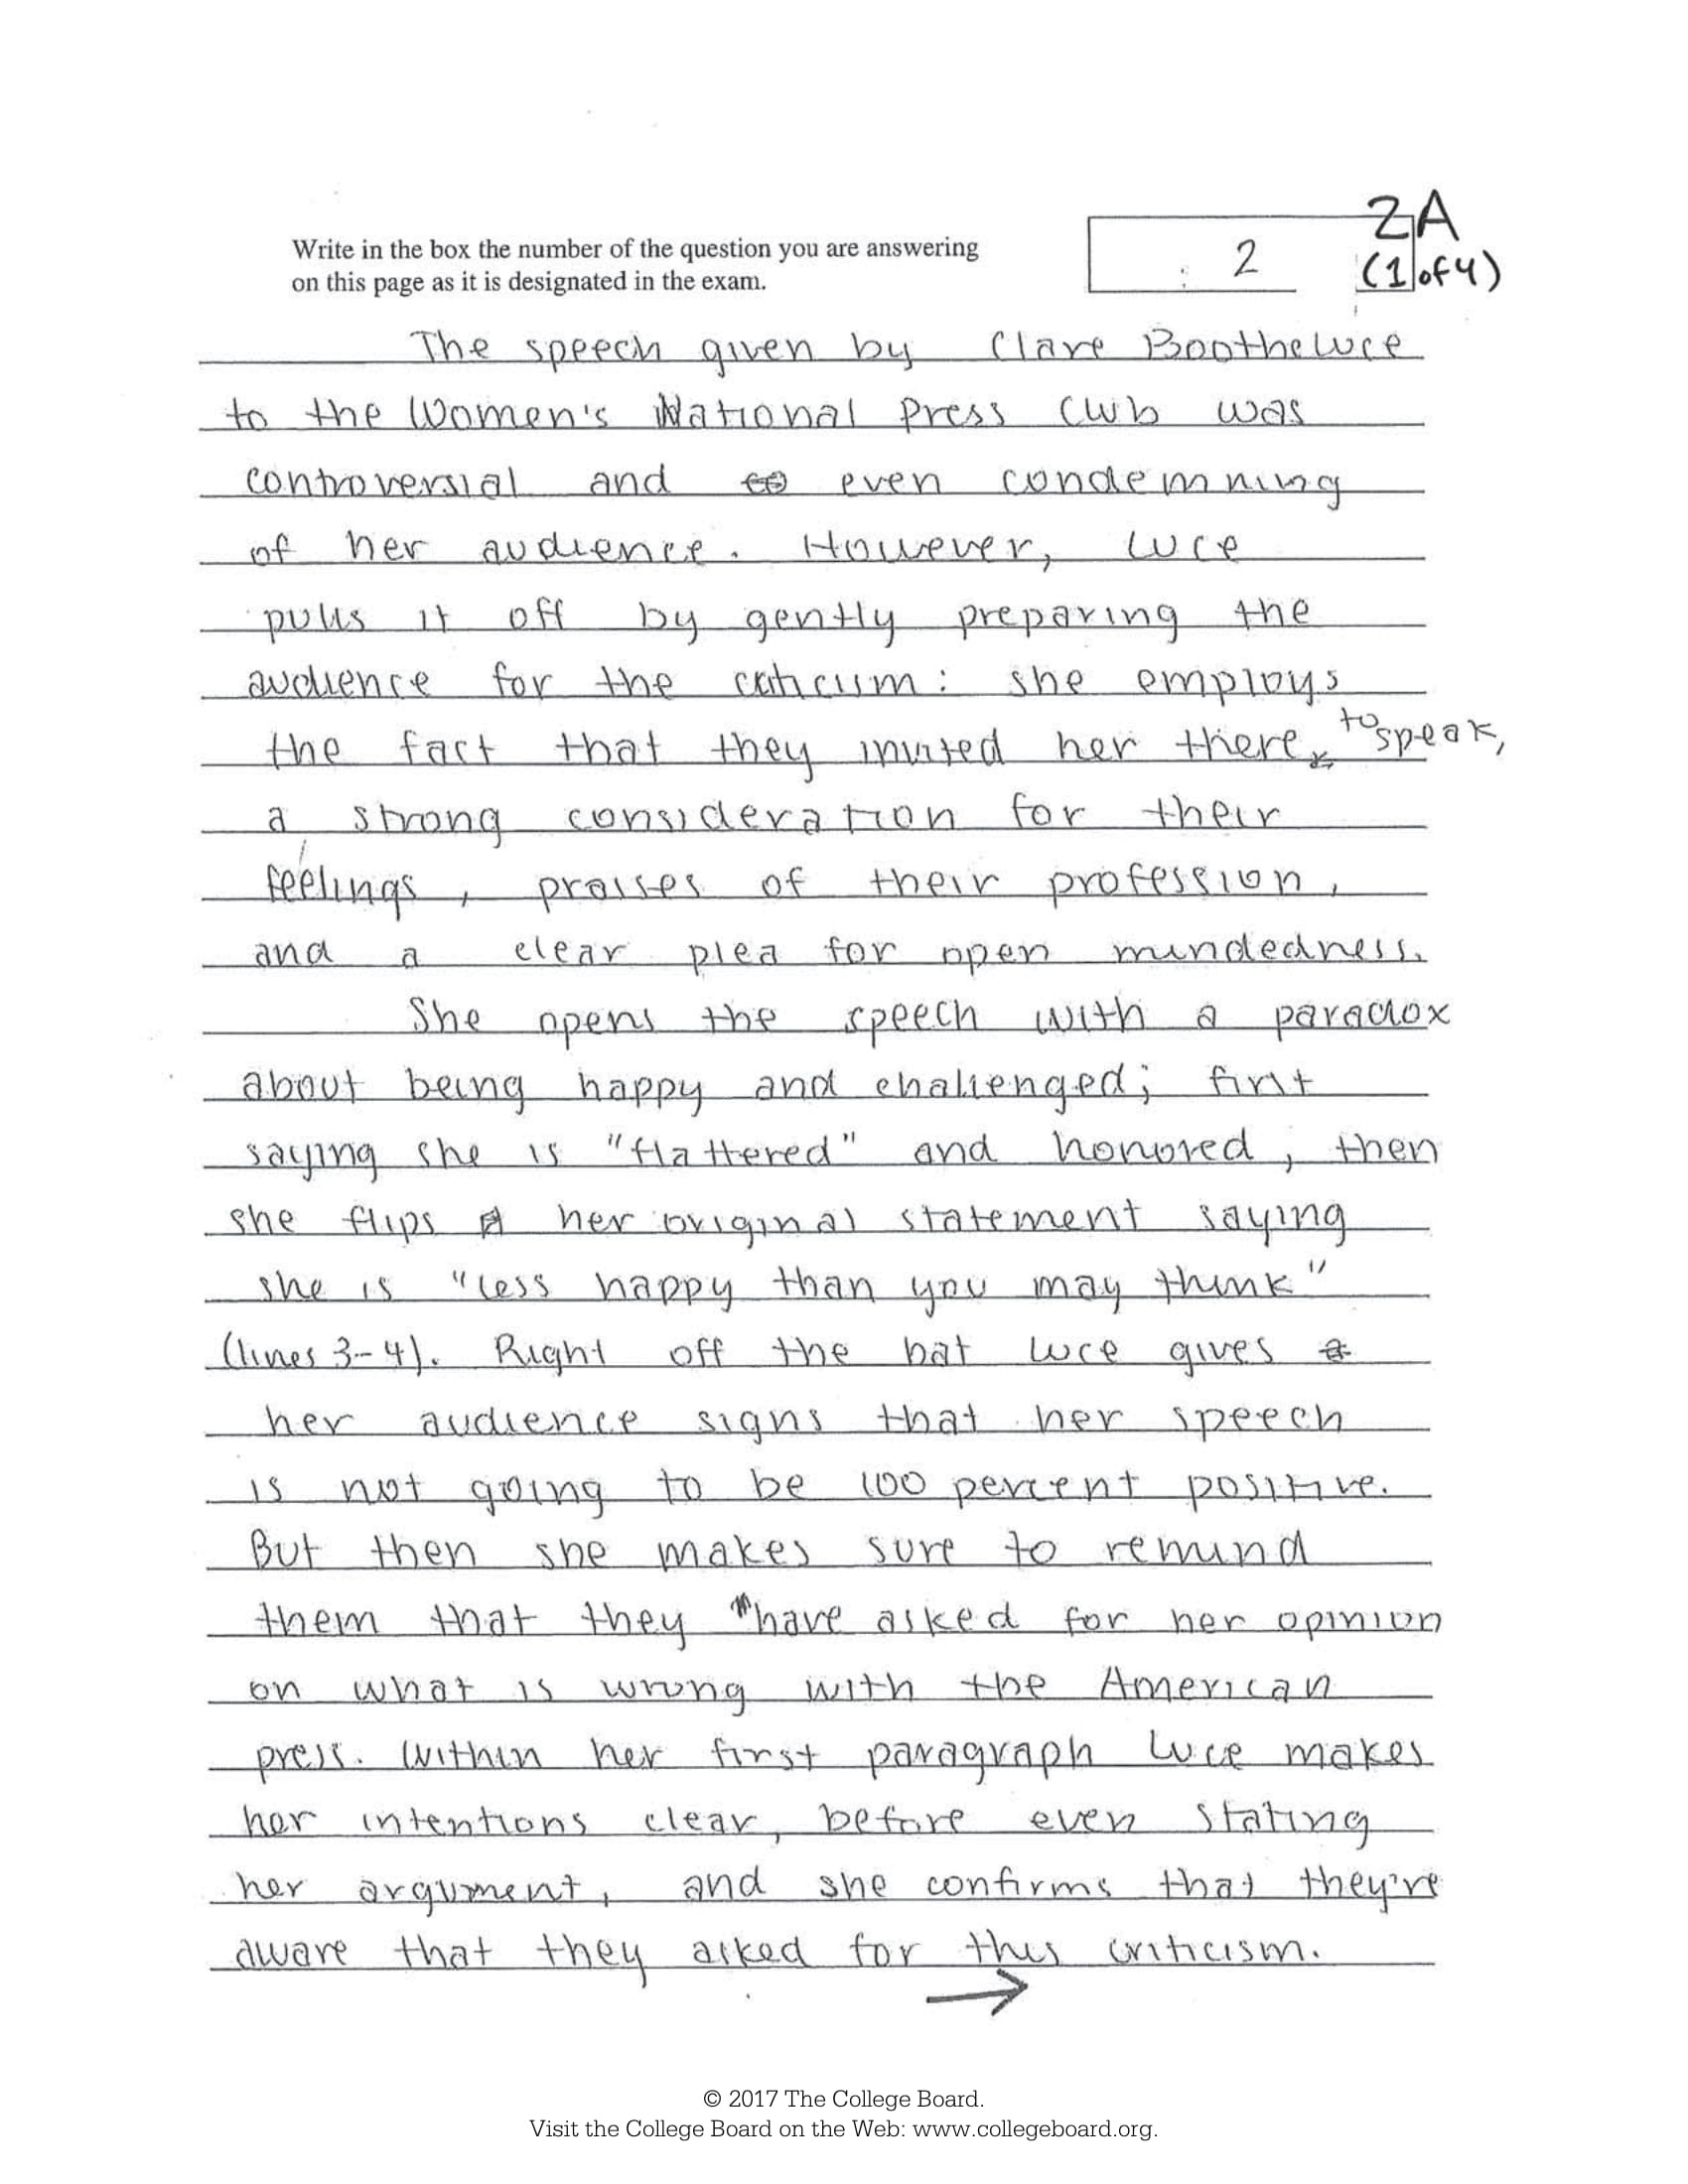 Write in the box the number of the question you are answering
on this page as it is designated in the exam.
2
2A
(1 of 4)
The speech given by Clare Boothe Luce
to the Women's National Press Club was
controversial and even condemning
of her audience. However, Luce
pulls it off by gently preparing the
audience for the criticism: she employs
the fact that they invited her there to speak,
a strong consideration for their
feelings, praises of their profession,
and a clear plea for open mindedness.
She opens the speech with a paradox
about being happy and challenged; first
saying she is "flattered" and honored, then
she flips her original statement saying
she is "less happy than you may think"
(lines 3-4). Right off the bat Luce gives
her audience signs that her speech
is not going to be 100 percent positive.
But then she makes sure to remind
them that they have asked for her opinion
on what is wrong with the American
press. Within her first paragraph Luce makes
her intentions clear, before even stating
her argument, and she confirms that they're
aware that they asked for this criticism.
→
© 2017 The College Board.
Visit the College Board on the Web: www.collegeboard.org.